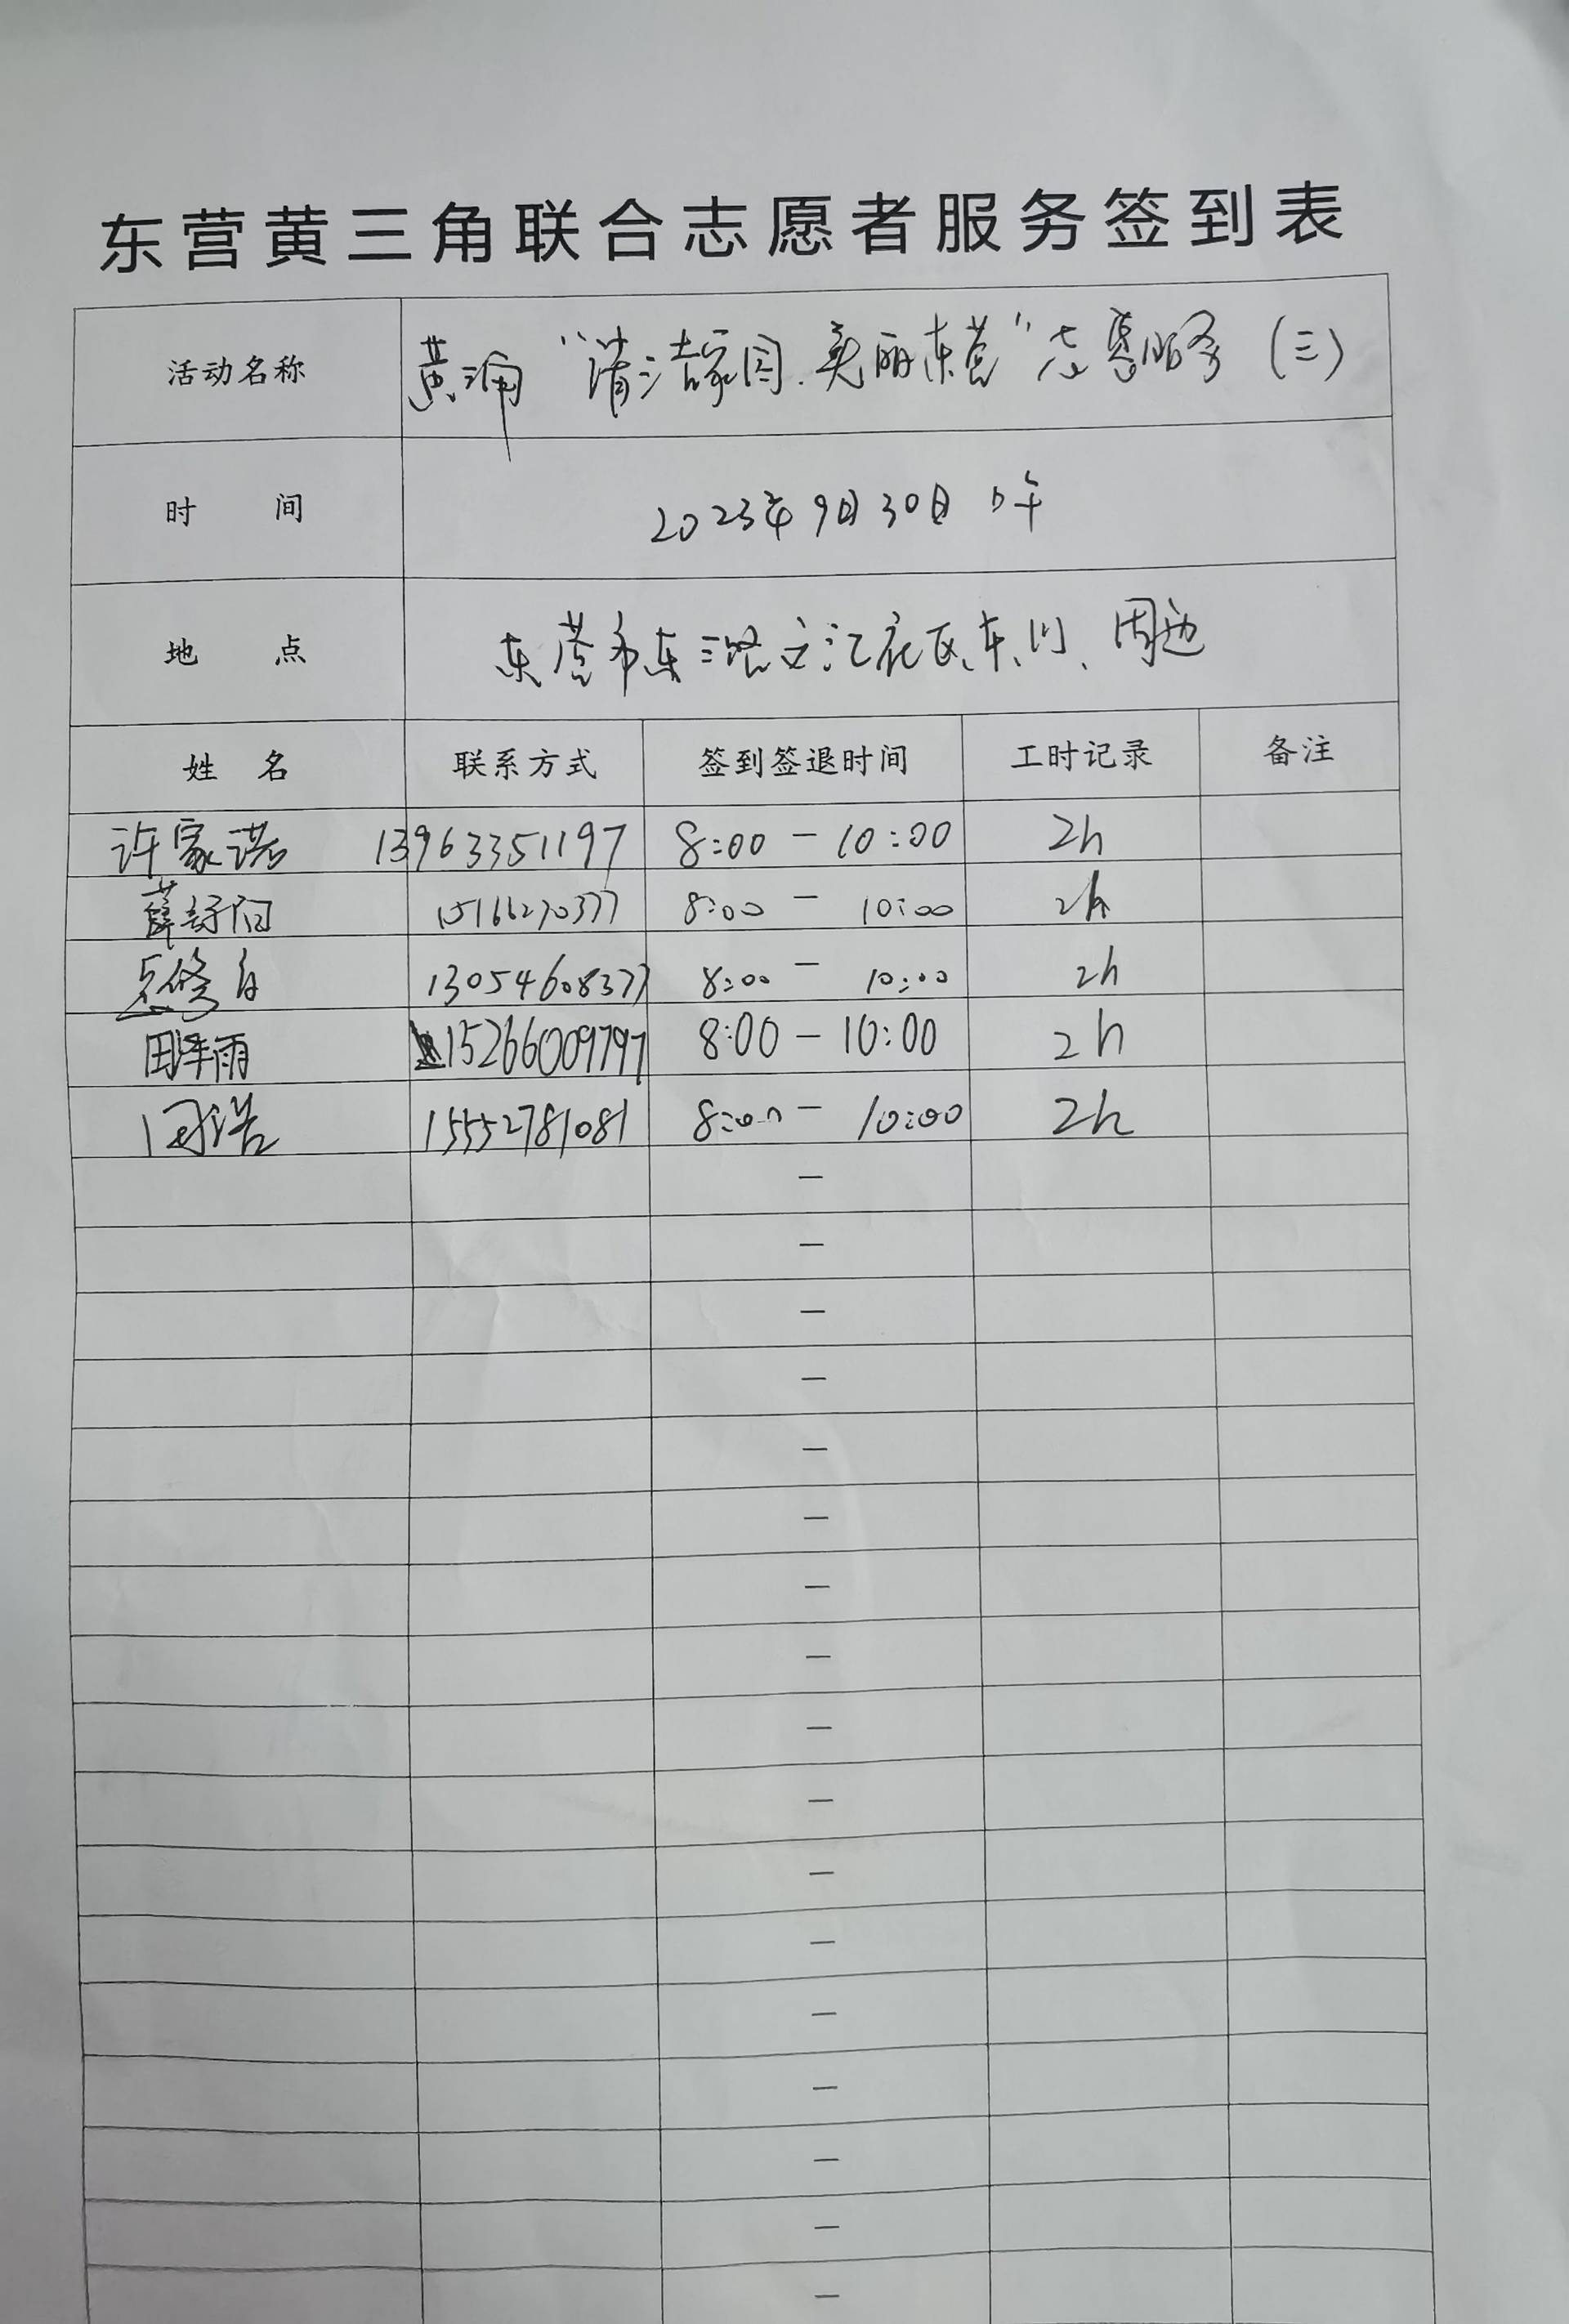 东营黄三角联合志愿者服务签到表
活动名称 黄河 "清洁家园.美丽东营" 志愿服务 (三)
时 间 2023年9月30日 午
地 点 东营市东三路文汇花园、东门、周边
姓 名 联系方式 签到签退时间 工时记录 备注
许家诺 13963351197 8:00 - 10:00 2h
薛舒阳 15166270377 8:00 - 10:00 2h
13054608377 8:00 - 10:00 2h
田泽雨 15266009797 8:00 - 10:00 2h
闫浩 15552781081 8:00 - 10:00 2h
—
—
—
—
—
—
—
—
—
—
—
—
—
—
—
—
—